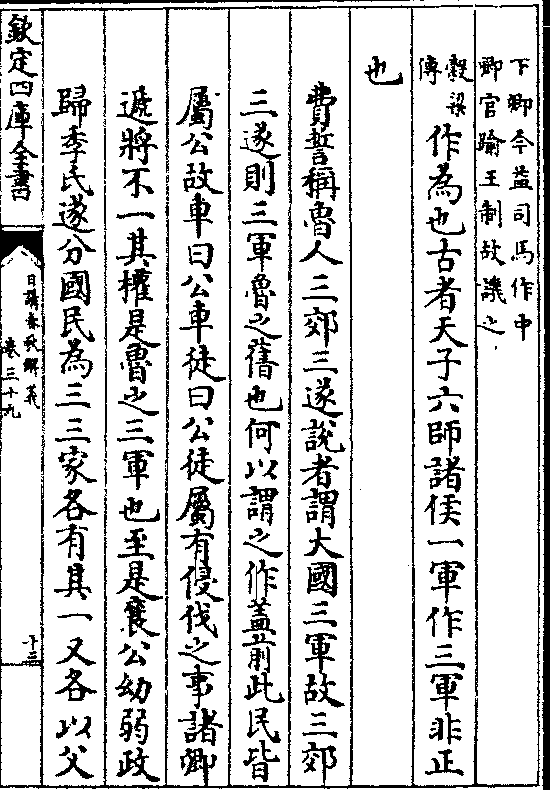 下卿今益司馬作中
卿官踰王制故譏之
穀梁
傳
作為也古者天子六師諸侯一軍作三軍非正
也
費誓稱魯人三郊三遂說者謂大國三軍故三郊
三遂則三軍魯之舊也何以謂之作蓋前此民皆
屬公故車曰公車徒曰公徒屬有侵伐之事諸卿
遞將不一其權是魯之三軍也至是襄公幼弱政
歸季氏遂分國民為三三家各有其一又各以父
欽定四庫全書
日講春秋解義
卷三十九
十三